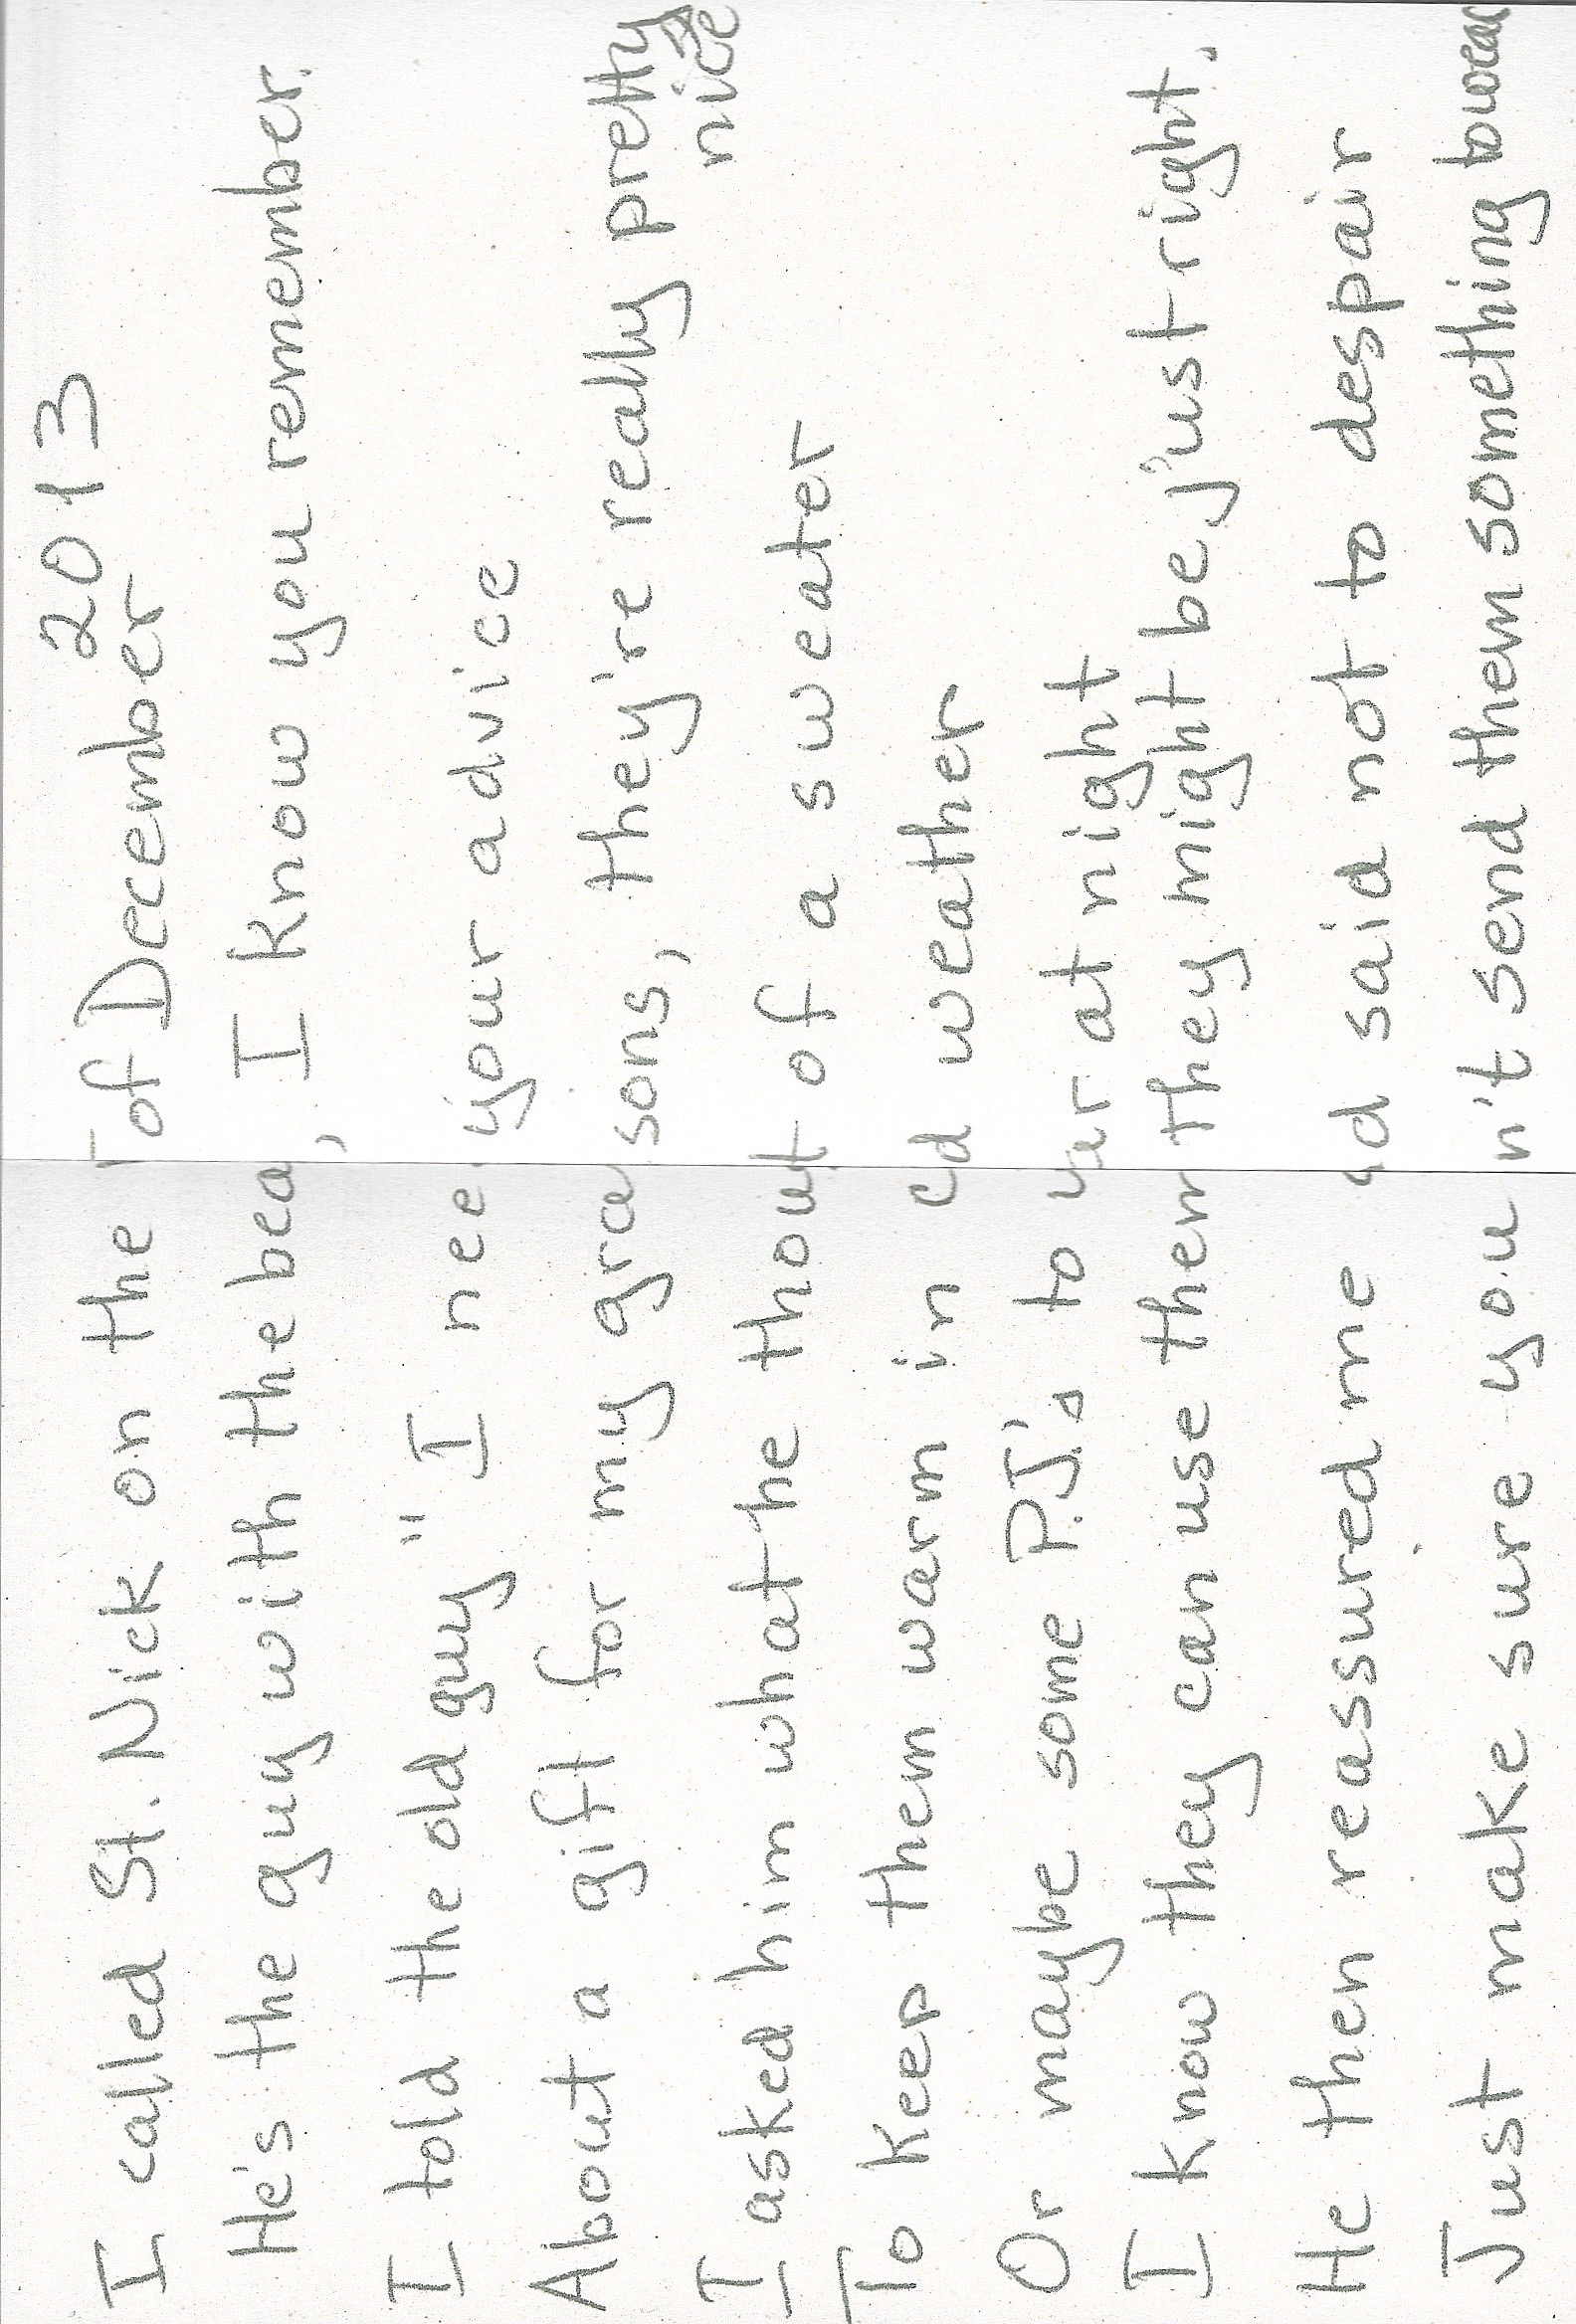 2013
I called St. Nick on the of December
He's the guy with the bea, I know you remember.
I told the old guy " I nee your advice
About a gift for my gra sons, they're really pretty
nice
I asked him what he thout of a sweater
To keep them warm in cd weather
Or maybe some P.J.'s to wr at night
I know they can use them they might be just right.
He then reassured me d said not to despair
Just make sure you n't send them something to wear